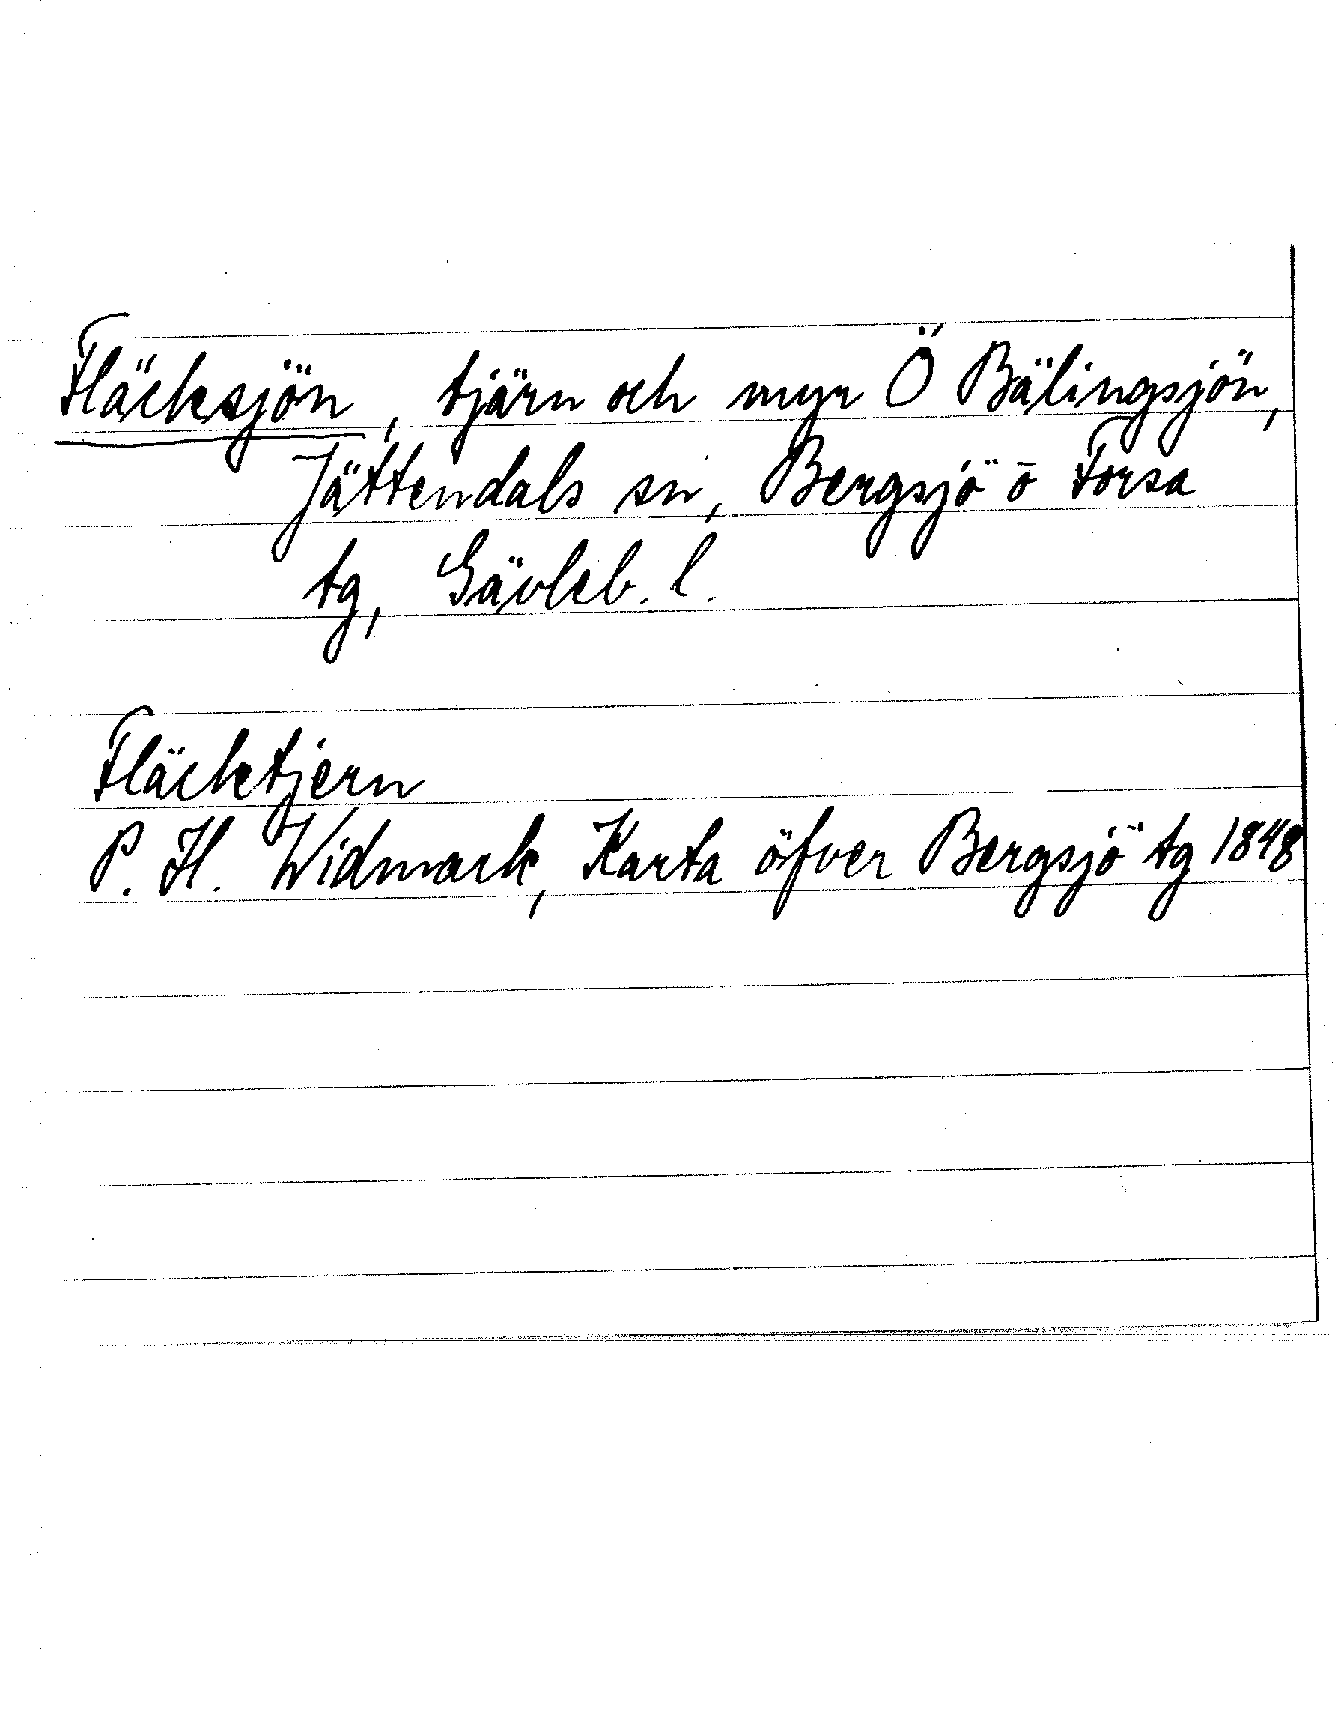 Fläcksjön, tjärn och myr Ö Bälingsjön,
Jättendals sn, Bergsjö o Forsa
tg, Gävleb. l.
Fläcktjern
P. H. Widmark, Karta öfver Bergsjö tg 1848